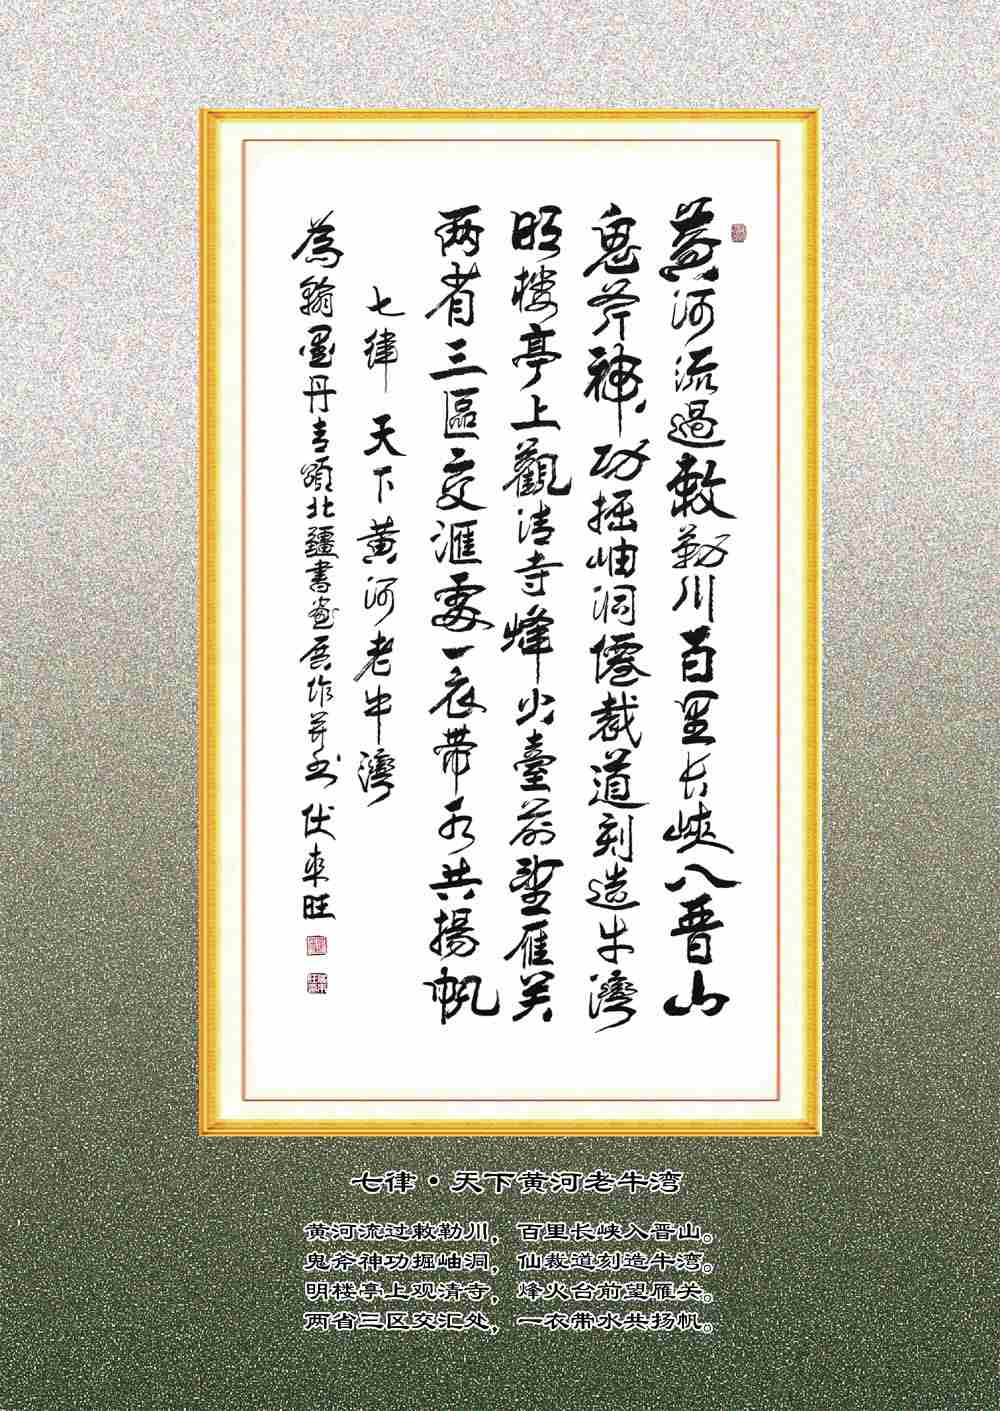 黄河流過敕勒川百里长峡入晋山
鬼斧神功掘岫洞僊裁道刻造牛湾
明楼亭上觀清寺烽火臺前望雁关
两省三區交滙處一衣帶水共揚帆
七律 天下黄河老牛湾
為翰墨丹青頌北疆書畫展作并书 伏来旺
七律·天下黄河老牛湾
黄河流过敕勒川，百里长峡入晋山。
鬼斧神功掘岫洞，仙裁道刻造牛湾。
明楼亭上观清寺，烽火台前望雁关。
两省三区交汇处，一衣带水共扬帆。